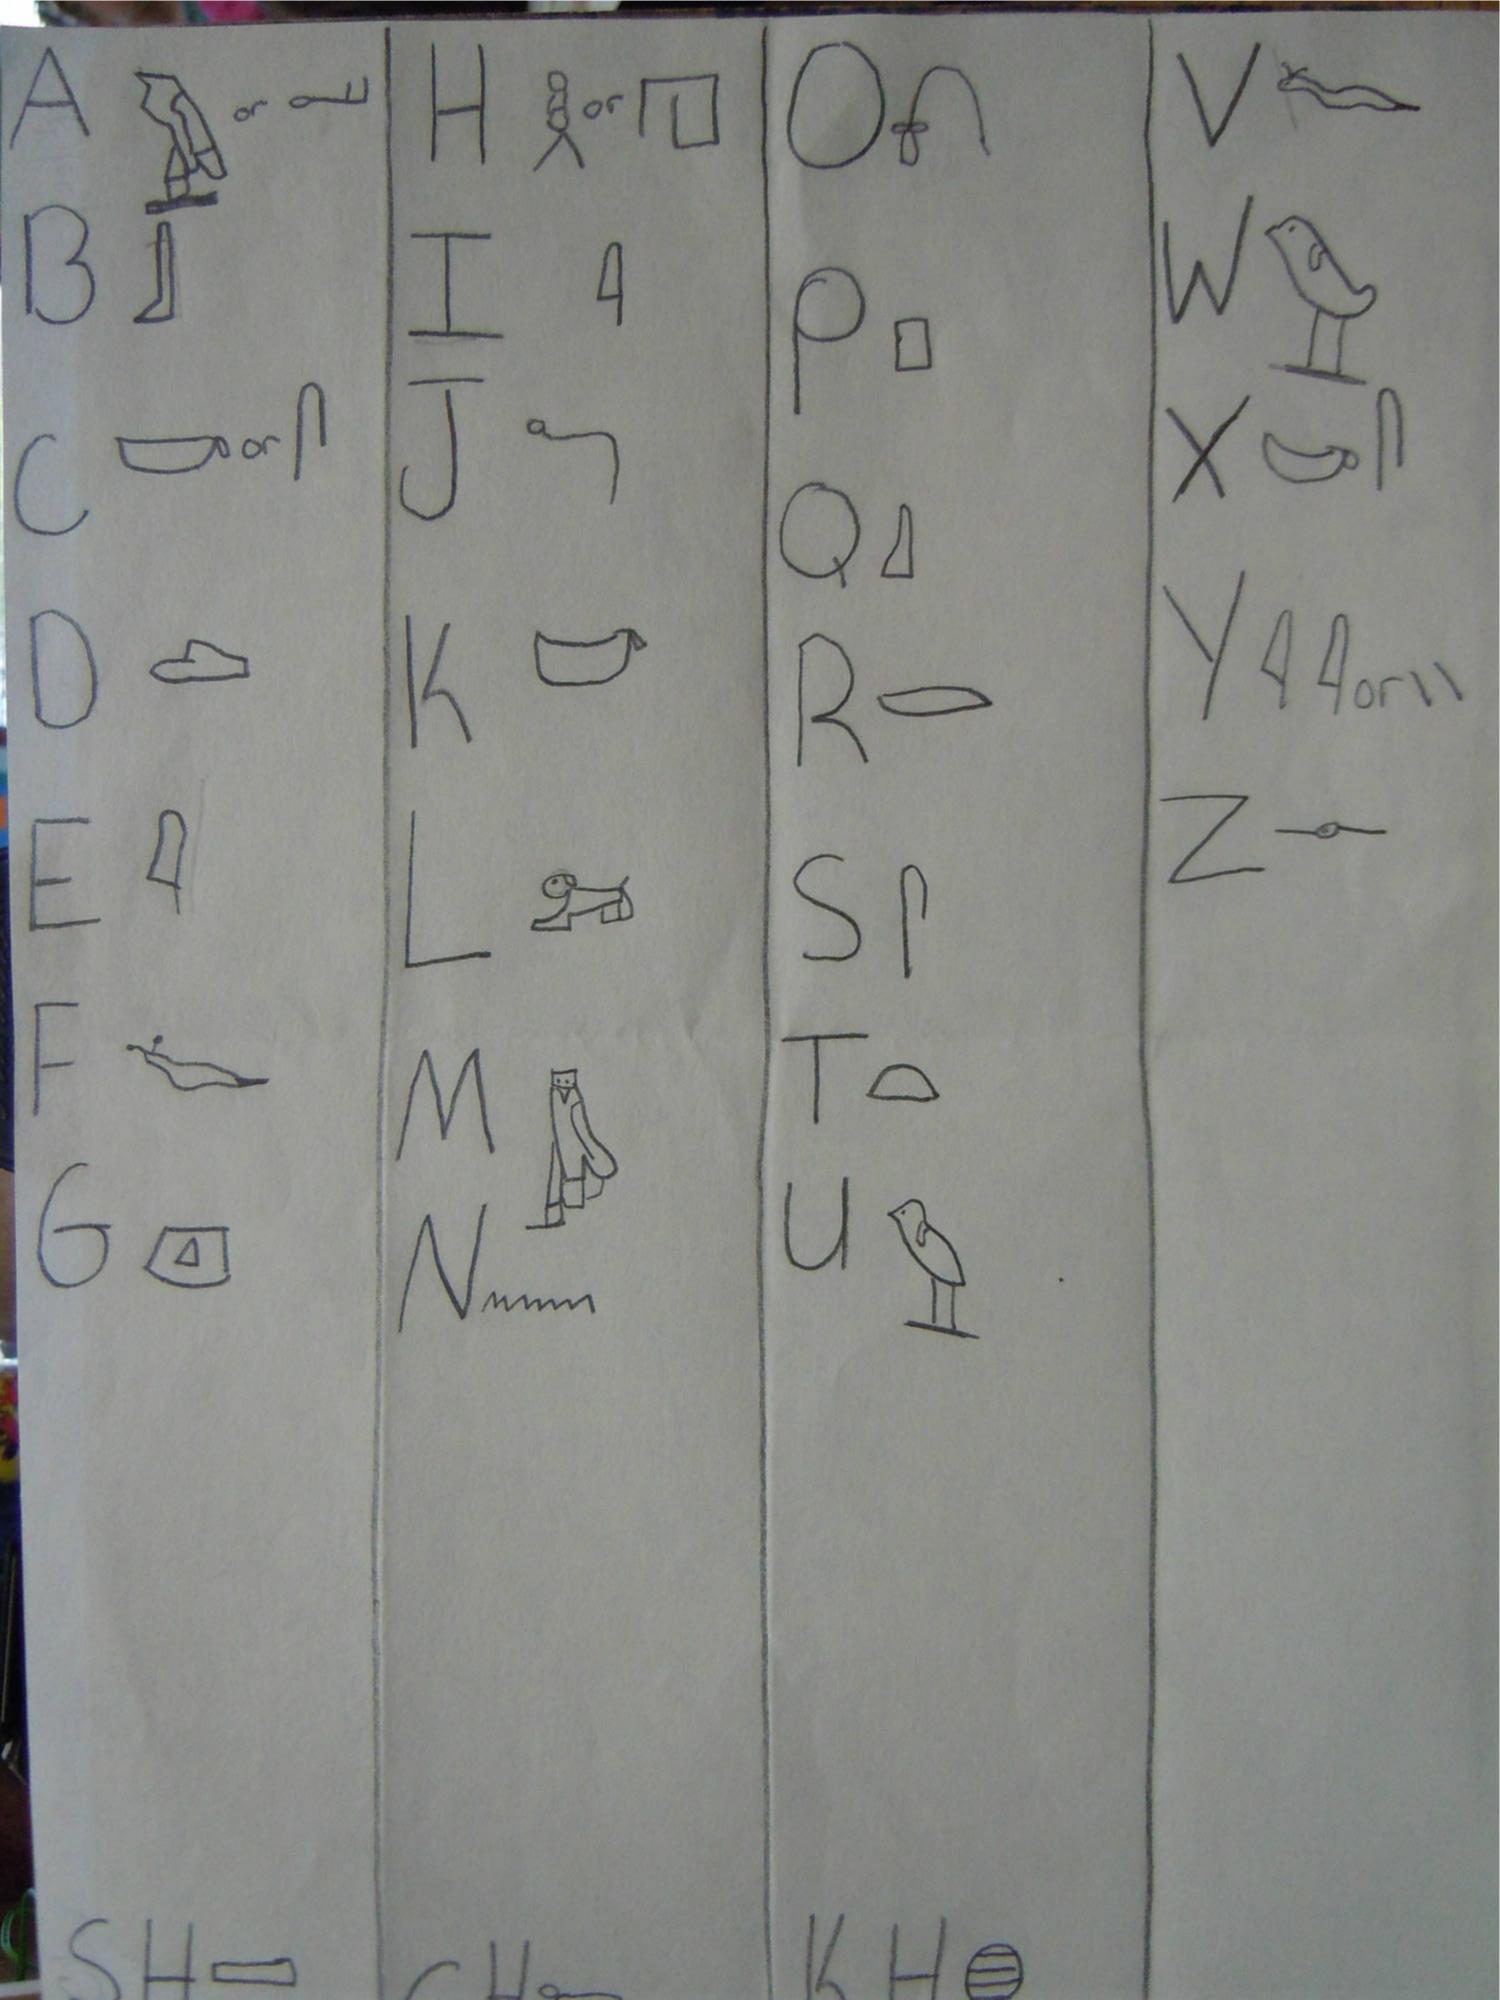 A or
B
C or
D
E
F
G
H or
I
J
K
L
M
N
O
P
Q
R
S
T
U
V
W
X
Y or
Z
SH
CH
KH